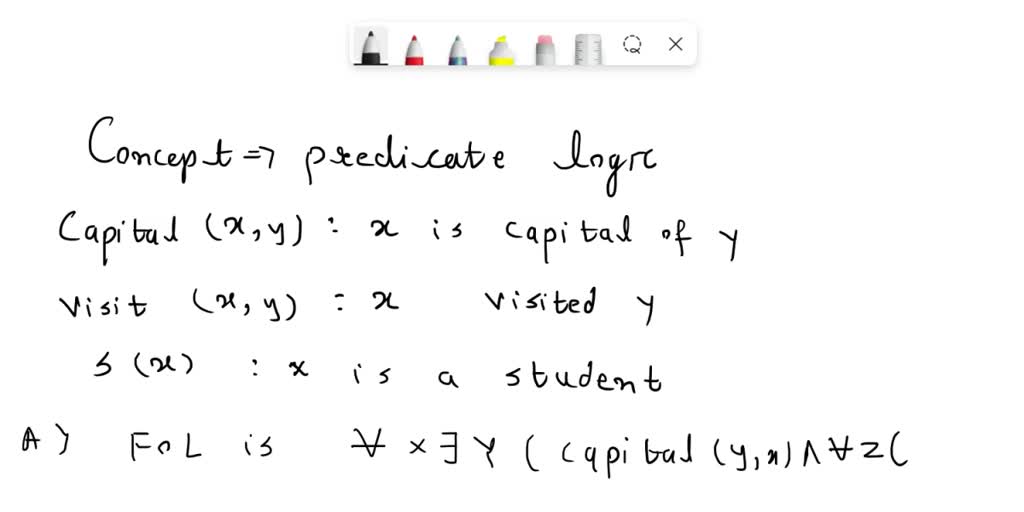 Concept => predicate logic
Capital (x,y) : x is capital of y
Visit (x, y) : x visited y
S (x) : x is a student
A) FOL is ∀ x ∃ Y ( capital (y,x) ∧ ∀ z (